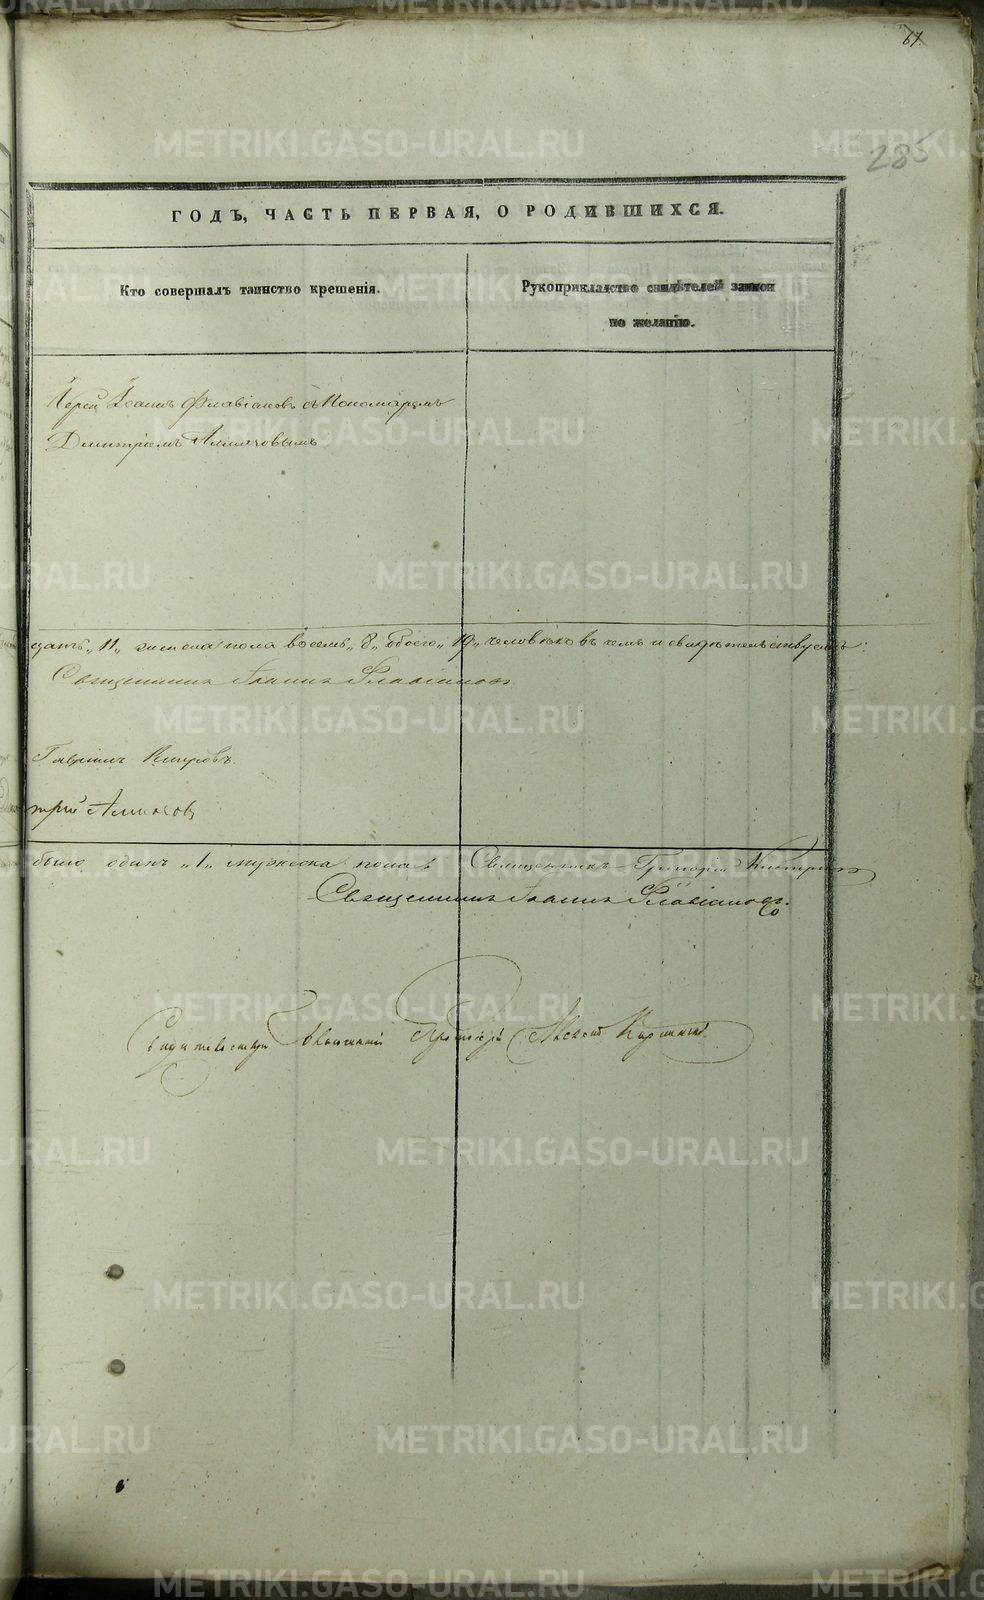 67
285
ГОДЪ, ЧАСТЬ ПЕРВАЯ, О РОДИВШИХСЯ.
Кто совершалъ таинство крещенія.
Рукоприкладство свидѣтелей записи
по желанію.
Іерей Іоаннъ Флавіановъ съ Пономаремъ
Димитріемъ
цать „11„ женска пола восемь „8„ обоего „19„ человѣкъ въ чемъ и свидѣтельствуемъ:
Священникъ Іоаннъ Флавіановъ.
Гавріилъ
трій
было одинъ „1„ мужеска пола Священникъ Григорій
Священникъ Іоаннъ Флавіановъ.
Благочинный Протоіерей Алексій
METRIKI.GASO-URAL.RU